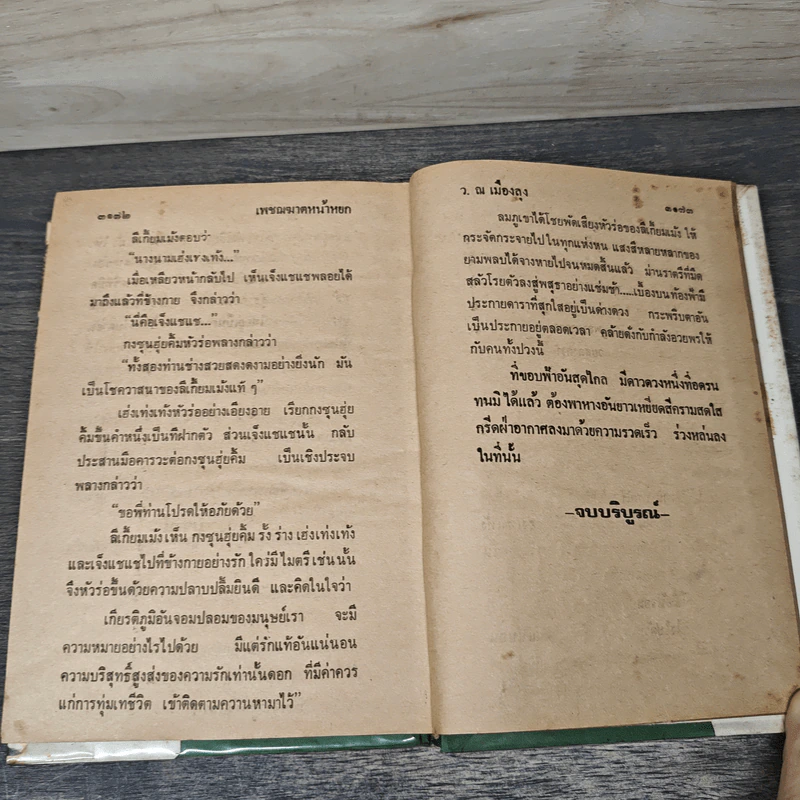 ๓๑๘๒ เพชฌฆาตหน้าหยก
ลีเกี้ยมเม้งตอบว่า
“นางนามเฮ่งเท่งเท้ง...”
เมื่อเหลียวหน้ากลับไป เห็นเจ็งแชแชพลอยได้
มาถึงแล้วที่ข้างกาย จึงกล่าวว่า
“นี่คือเจ็งแชแช...”
กงซุนฮุ่ยคิ้มหัวร่อพลางกล่าวว่า
“ทั้งสองท่านช่างสวยสดงดงามอย่างยิ่งนัก มัน
เป็นโชควาสนาของลีเกี้ยมเม้งแท้ ๆ”
เฮ่งเท่งเท้งหัวร่ออย่างเอียงอาย เรียกกงซุนฮุ่ย
คิ้มขึ้นคำหนึ่งเป็นที่ฝากตัว ส่วนเจ็งแชแชนั้น กลับ
ประสานมือคารวะต่อกงซุนฮุ่ยคิ้ม เป็นเชิงประจบ
พลางกล่าวว่า
“ขอพี่ท่านโปรดให้อภัยด้วย”
ลีเกี้ยมเม้ง เห็น กงซุนฮุ่ยคิ้ม รั้ง ร่าง เฮ่งเท่งเท้ง
และเจ็งแชแชไปที่ข้างกายอย่างรัก ใคร่มี ไมตรี เช่น นั้น
จึงหัวร่อขึ้นด้วยความปลาบปลื้มยินดี และคิดในใจว่า
เกียรติภูมิอันจอมปลอมของมนุษย์เรา จะมี
ความหมายอย่างไรไปด้วย มีแต่รักแท้อันแน่นอน
ความบริสุทธิ์สูงส่งของความรักเท่านั้นดอก ที่มีค่าควร
แก่การทุ่มเทชีวิต เข้าติดตามควานหามาไว้”
ว. ณ เมืองลุง ๓๑๘๓
ลมภูเขาได้โชยพัดเสียงหัวร่อของลีเกี้ยมเม้ง ให้
กระจัดกระจายไป ในทุกแห่งหน แสงสีหลายหลากของ
ยามพลบได้จางหายไปจนหมดสิ้นแล้ว ม่านราตรีที่มืด
สลัวโรยตัวลงสู่พสุธาอย่างแช่มช้า.....เบื้องบนท้องฟ้ามี
ประกายดาราที่สุกใสอยู่เป็นด่างดวง กระพริบตาอัน
เป็นประกายอยู่ตลอดเวลา คล้ายดังกับกำลังอวยพรให้
กับคนทั้งปวงนี้
ที่ขอบฟ้าอันสุดไกล มีดาวดวงหนึ่งที่อดรน
ทนมิ ได้แล้ว ต้องพาหางอันยาวเหยียดสีครามสดใส
กรีดฝ่าอากาศลงมาด้วยความรวดเร็ว ร่วงหล่นลง
ในที่นั้น
–จบบริบูรณ์–